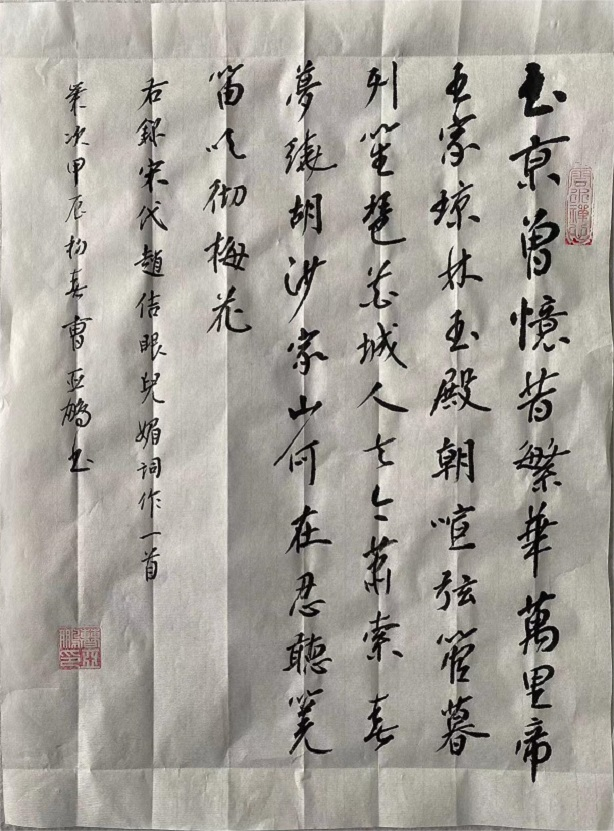 玉京曾憶昔繁華萬里帝
王家琼林玉殿朝喧弦管暮
列笙琶花城人去今萧索春
夢繞胡沙家山何在忍聽羌
笛吹彻梅花
右録宋代趙佶眼兒媚詞作一首
歲次甲辰初春曹亞鵬书
曹亞鵬印